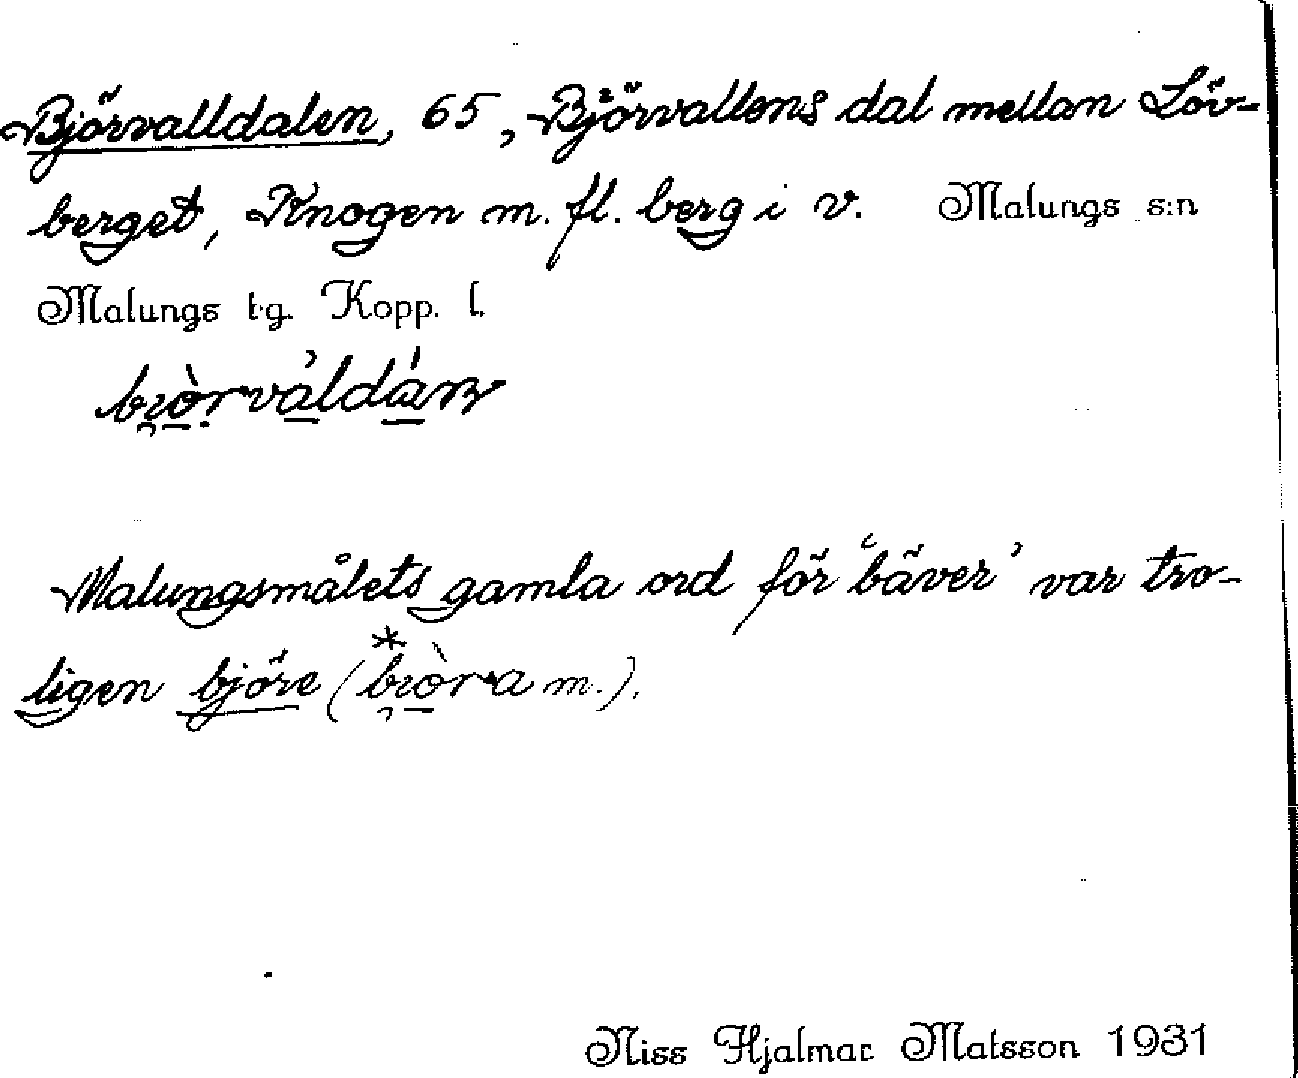 Björvalldalen, 65, Björvallens dal mellan Löv-
berget, Knogen m. fl. berg i v. Malungs s:n
Malungs t:g. Kopp. l.
Malungsmålets gamla ord för 'bäver' var tro-
ligen björe (*bi̯òra m.).
Niss Hjalmar Matsson 1931